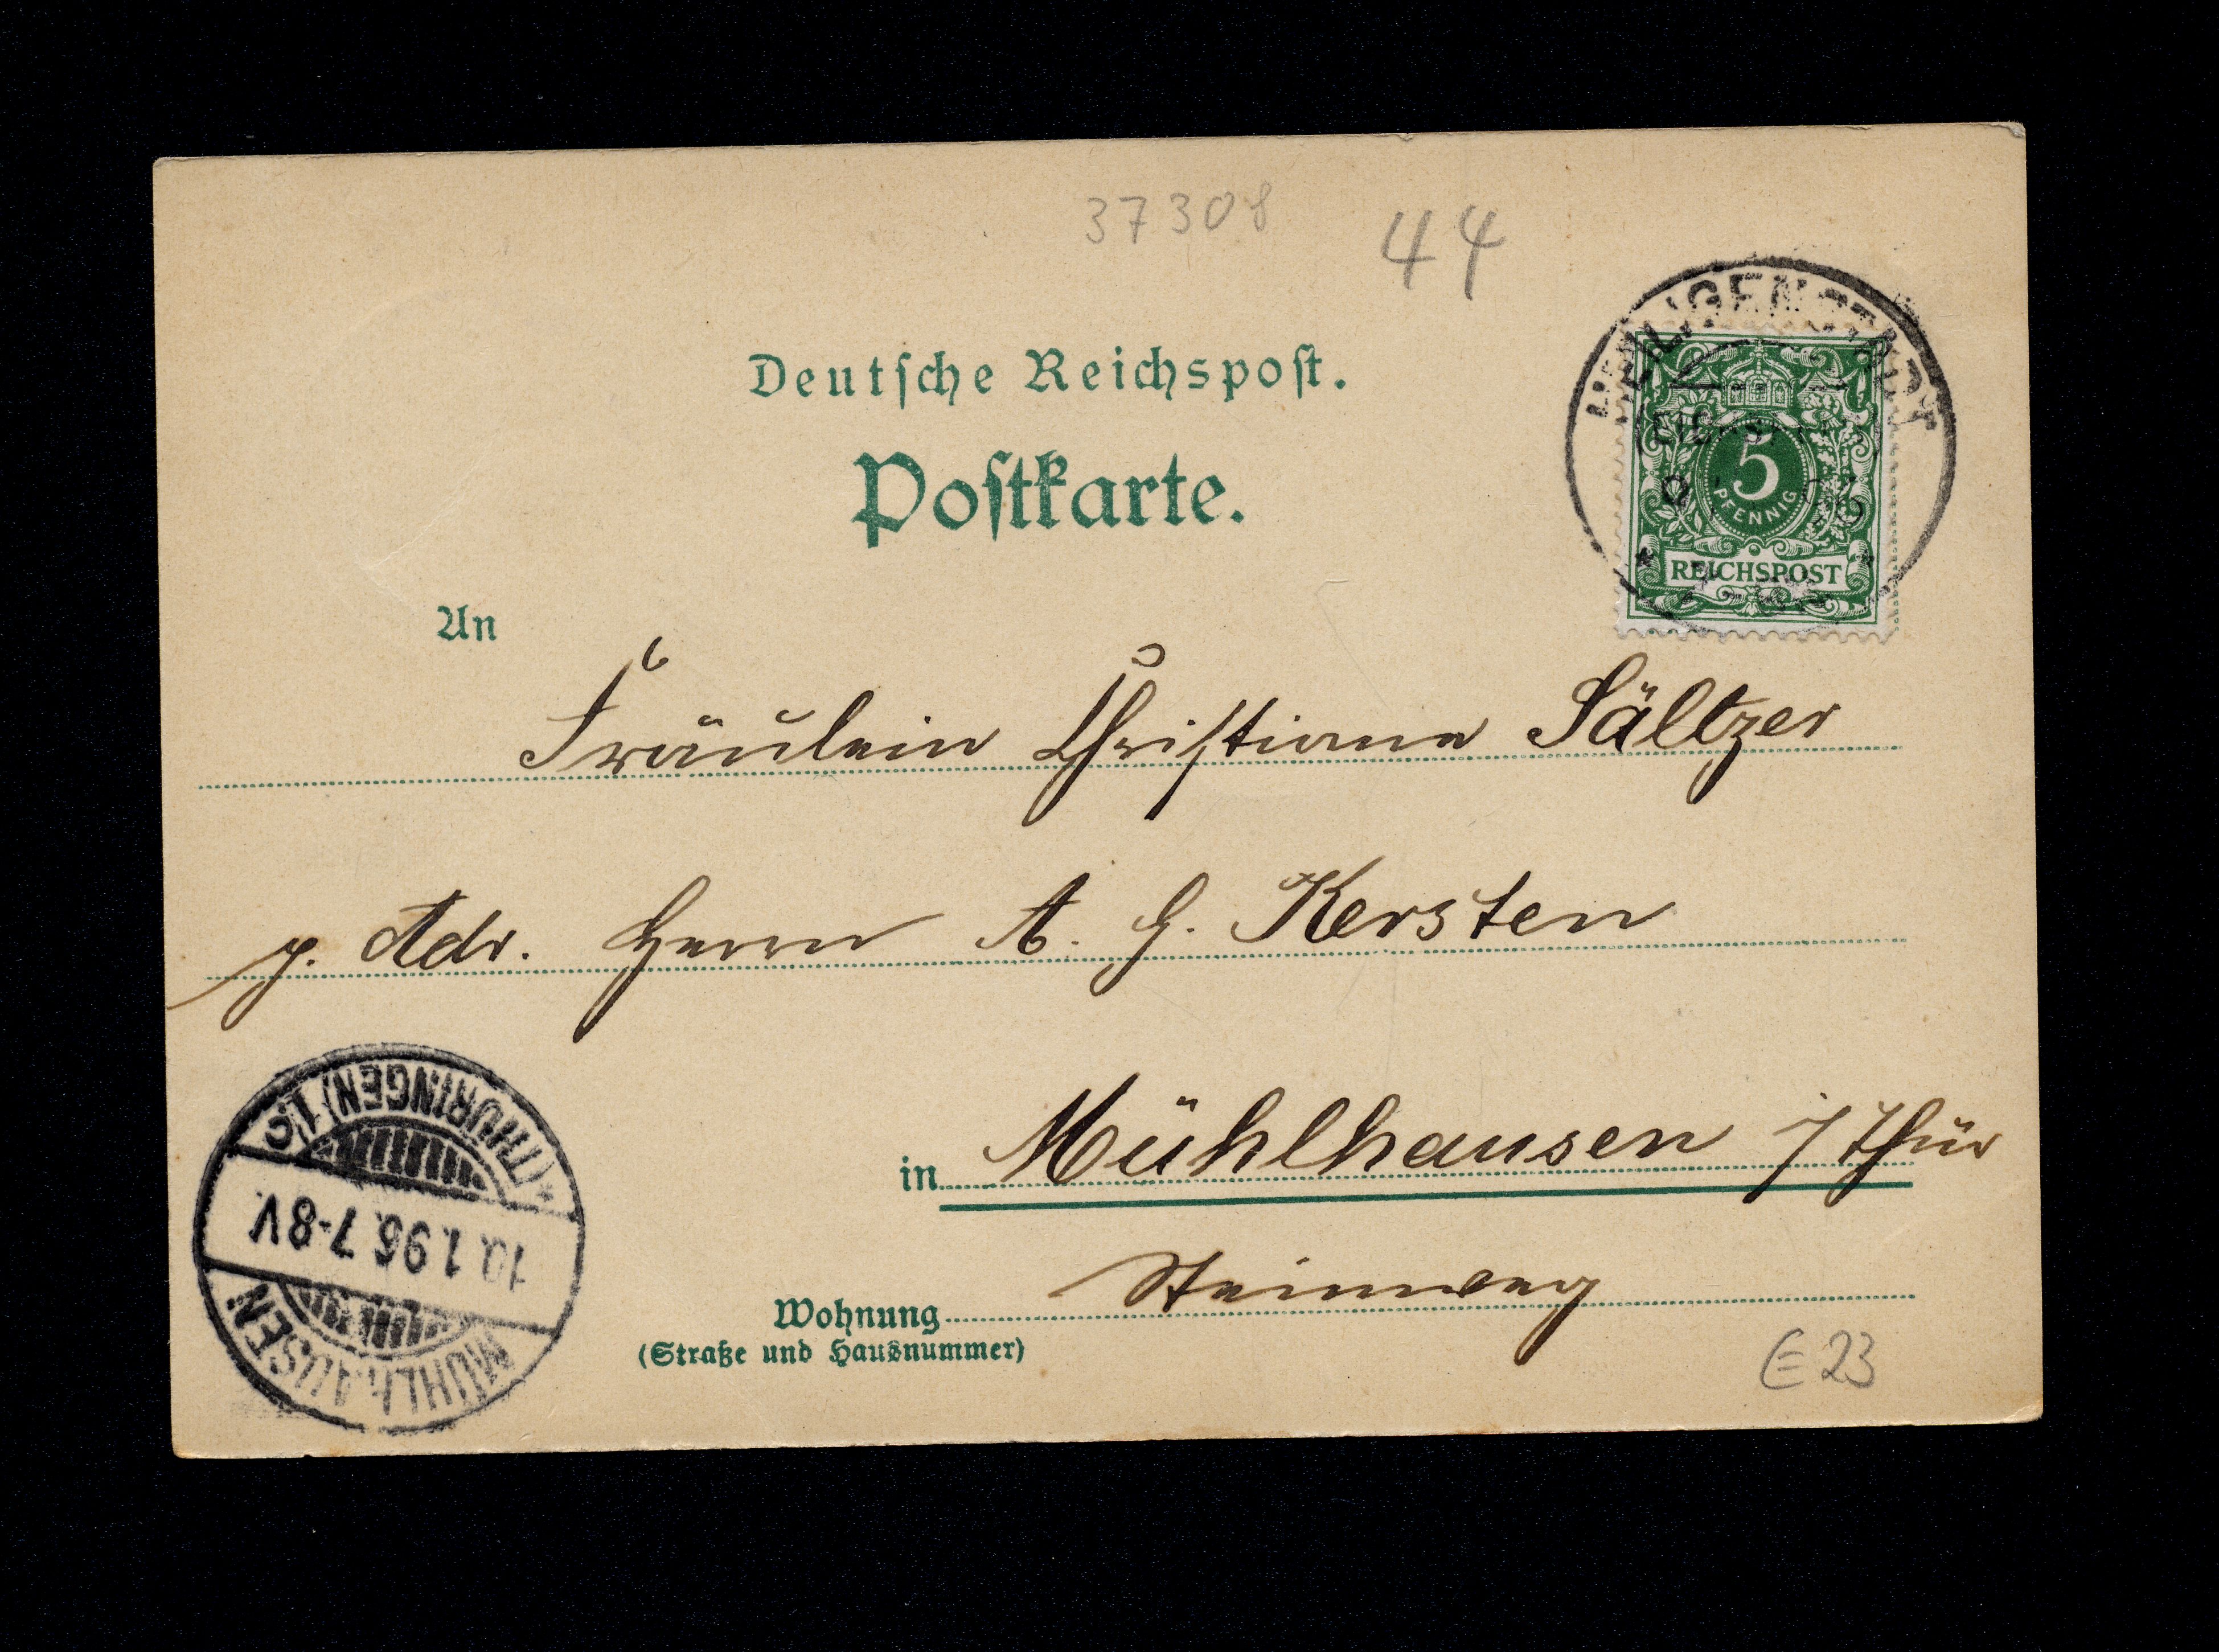 37308
44
HEILIGENSTADT
5
PFENNIG
REICHSPOST
Deutſche Reichspoſt.
Poſtkarte.
An
Fräulein Chriſtiane Sältzer
p. Adr. Herrn A. G. Kersten
in Mühlhausen i/Thür
Wohnung Steinweg
(Straße und Hausnummer)
E23
MÜHLHAUSEN
10.1.96.7-8V.
*(THÜRINGEN)1.c